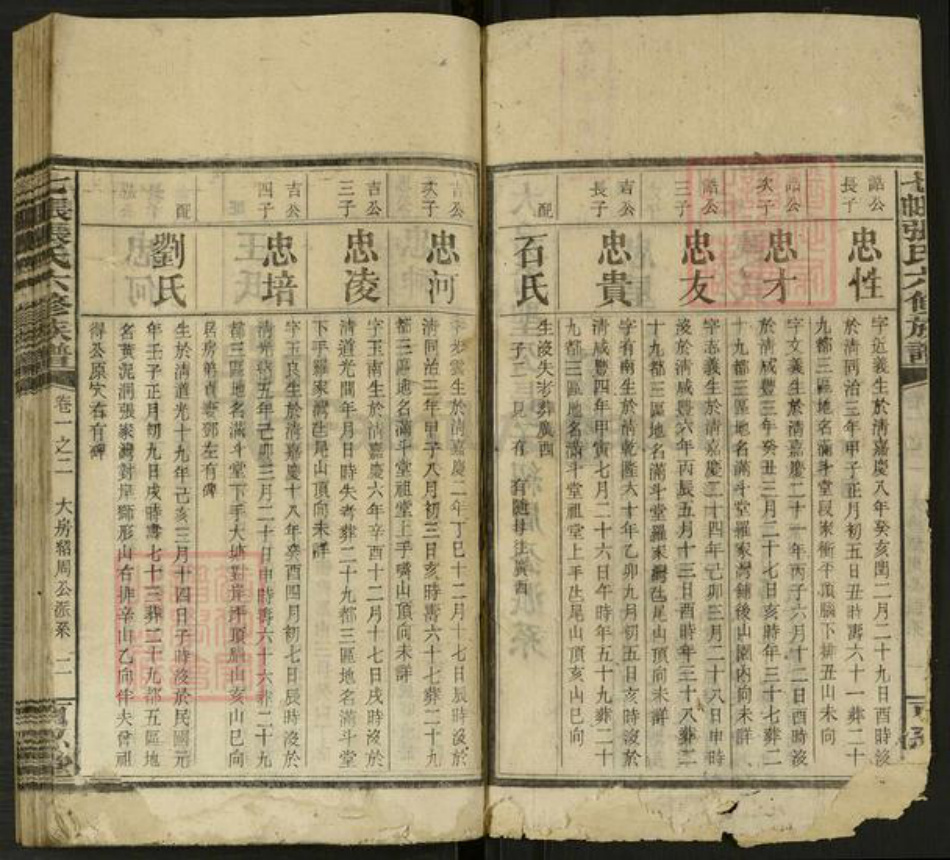 七帳張氏六修族譜
誥公
長子
忠性
字近義生於清嘉慶八年癸亥閏二月二十九日酉時沒
於清同治三年甲子正月初五日丑時壽六十一葬二十
九都三區地名滿斗堂段家衝平頂腦下排丑山未向
誥公
次子
忠才
字文義生於清嘉慶二十一年丙子六月十二日酉時沒
於清咸豐三年癸丑三月二十七日亥時年三十七葬二
十九都三區地名滿斗堂羅家灣鋪後山園內向未詳
誥公
三子
忠友
字志義生於清嘉慶二十四年己卯三月二十八日申時
沒於清咸豐六年丙辰五月十三日酉時年三十八葬二
十九都三區地名滿斗堂羅家灣㘰尾山頂向未詳
吉公
長子
忠貴
字有南生於清乾隆六十年乙卯九月初五日亥時沒於
清咸豐四年甲寅七月二十六日午時年五十九葬二十
九都三區地名滿斗堂祖堂上手㘰尾山頂亥山巳向
配
石氏
生沒失考葬廣西
吉公
次子
忠河
字步雲生於清嘉慶二年丁巳十二月十七日辰時沒於
清同治三年甲子八月初三日亥時壽六十七葬二十九
都三區地名滿斗堂祖堂上手嘴山頂向未詳
吉公
三子
忠凌
字玉南生於清嘉慶六年辛酉十二月十七日戌時沒於
清道光間年月日時失考葬二十九都三區地名滿斗堂
下手羅家灣㘰尾山頂向未詳
吉公
四子
忠培
字玉良生於清嘉慶十八年癸酉四月初七日辰時沒於
清光緒五年己卯三月二十日申時壽六十六葬二十九
都三區地名滿斗堂下手大塘對岸坪頂腦山亥山巳向
配
劉氏
生於清道光十九年己亥三月十四日子時沒於民國元
年壬子正月初九日戌時壽七十三葬二十九都五區地
名黃泥潤張家灣對岸獅形山右排辛山乙向伴夫曾祖
得公原穴右有碑
七帳張氏六修族譜
卷一之二
大房
周公派系
二一